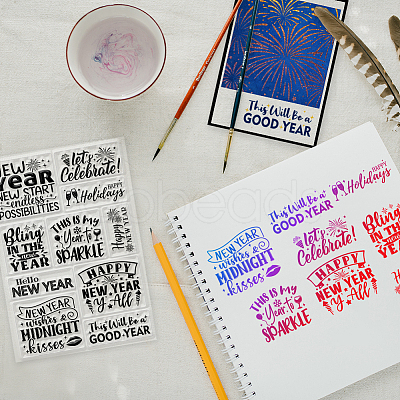 This Will Be a
GOOD YEAR
NEW
Year
NEW START
endless
POSSIBILITIES
let's
Celebrate!
HAPPY
Holidays
Bling
IN THE
THIS IS my
Year to
SPARKLE
Hello
NEW YEAR
HAPPY
NEW YEAR
y'All
NEW YEAR
wishes &
MIDNIGHT
kisses
This Will Be a
GOOD YEAR
This Will Be a
GOOD YEAR
HAPPY
Holidays
NEW YEAR
wishes &
MIDNIGHT
kisses
let's
Celebrate!
Bling
IN THE
THIS IS my
Year to
SPARKLE
HAPPY
NEW YEAR
y'All